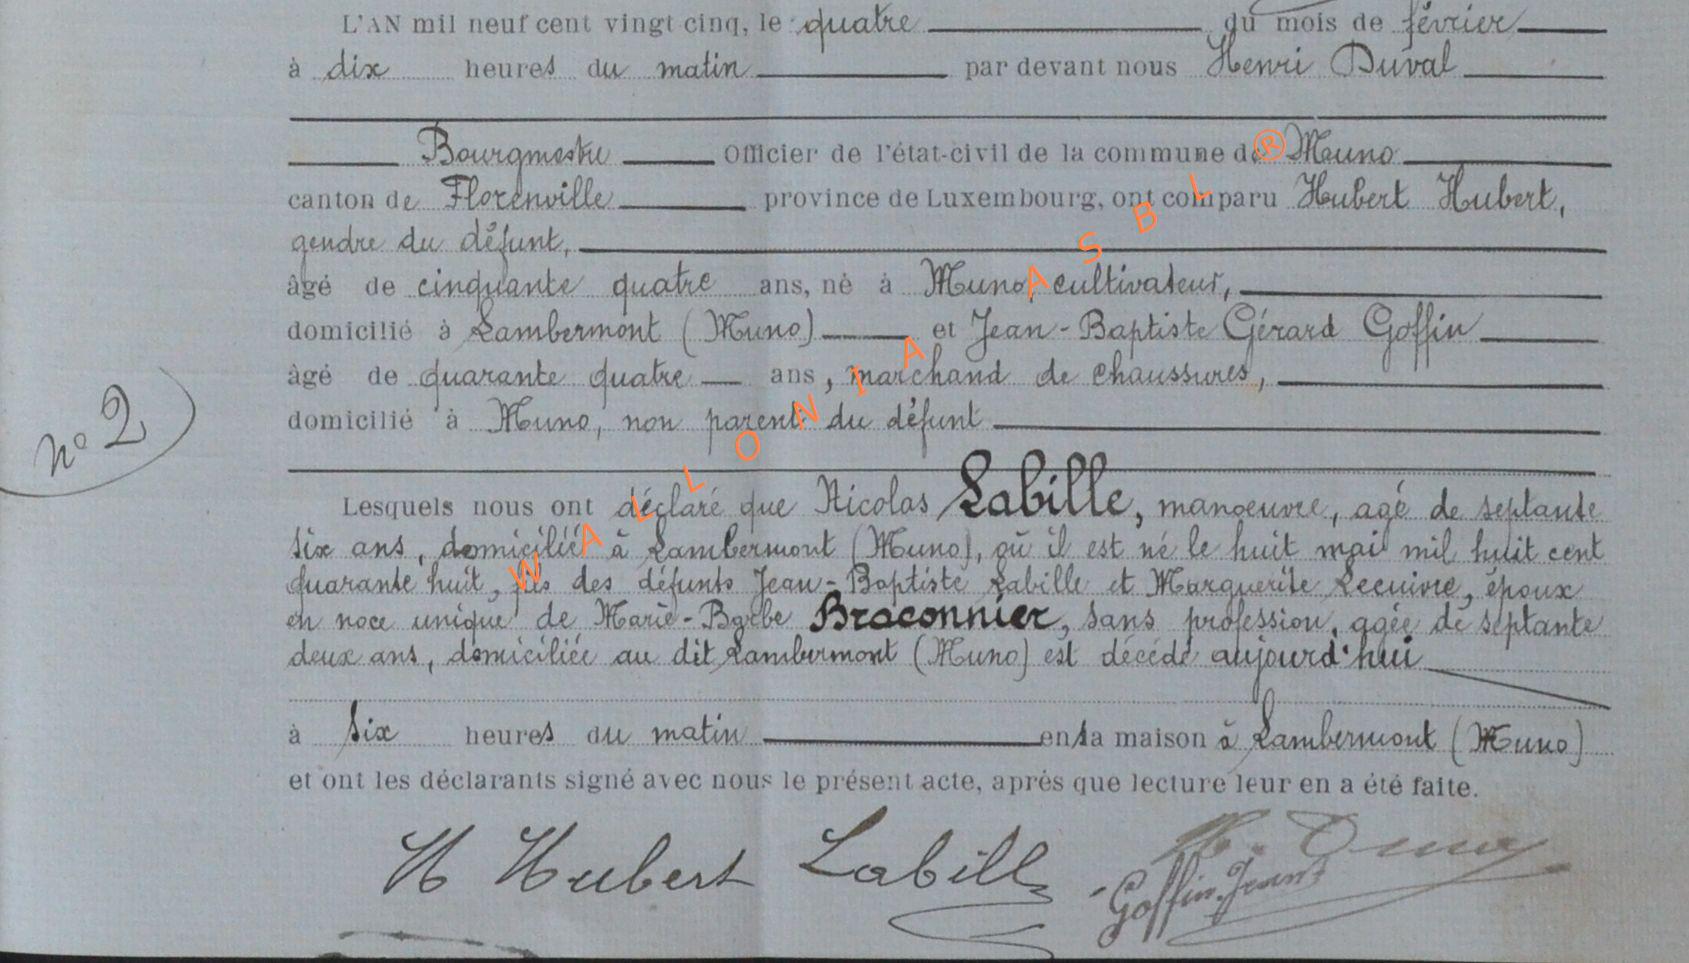 L'AN mil neuf cent vingt cinq, le quatre du mois de février
à dix heures du matin par devant nous Henri Duval
Bourgmestre Officier de l'état-civil de la commune de Muno
canton de Florenville province de Luxembourg, ont comparu Hubert Hubert,
gendre du défunt,
âgé de cinquante quatre ans, né à Muno, cultivateur,
domicilié à Lambermont (Muno) et Jean-Baptiste Gérard Goffin
âgé de quarante quatre ans, marchand de chaussures,
domicilié à Muno, non parent du défunt
n° 2
Lesquels nous ont déclaré que Nicolas Labille, manœuvre, agé de septante
six ans, domicilié à Lambermont (Muno), où il est né le huit mai mil huit cent
quarante huit, fils des défunts Jean-Baptiste Labille et Marguerite Lecuivre, époux
en noce unique de Marie-Barbe Braconnier, sans profession, agée de septante
deux ans, domiciliée au dit Lambermont (Muno) est décédé aujourd'hui
à six heures du matin en sa maison à Lambermont (Muno)
et ont les déclarants signé avec nous le présent acte, après que lecture leur en a été faite.
H Hubert Labille H. Duval
Goffin Jean
WALLONIA ASBL ®